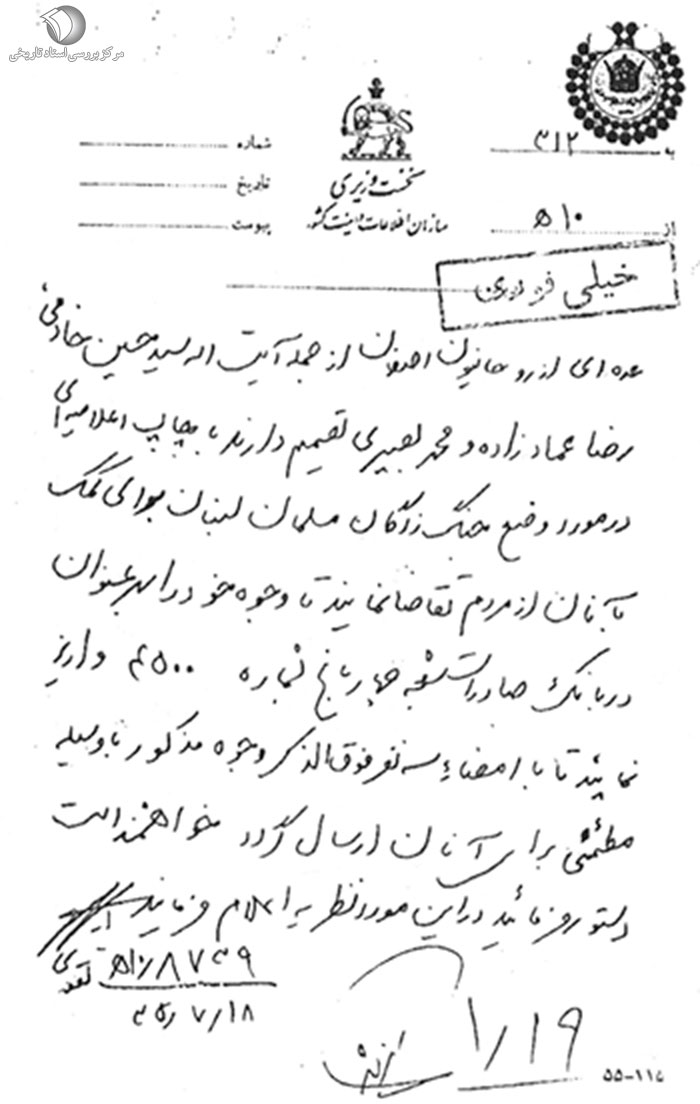 مرکز بررسی اسناد تاریخی
به ۳۱۲
شماره
نخست وزیری
تاریخ
سازمان اطلاعات و امنیت کشور
از ۱۰ ه
پیوست
خیلی فوری
عده ای از روحانیون اصفهان از جمله آیت اله سید حسین خادمی،
رضا عمادزاده و محمد نصیری تصمیم دارند با چاپ اعلامیه ای
در مورد وضع جنگ زدگان مسلمان لبنان برای کمک
بآنان از مردم تقاضا نمایند تا وجوه خود را به عنوان
در بانک صادرات شعبه چهارباغ شماره ۴۵۰۰ واریز
نمایند تا با امضاء سه نفر فوق الذکر وجوه مذکور با وسیله
مطمئنی برای آنان ارسال گردد خواهشمند است
دستور فرمائید در این مورد نظریه اعلام فرمایند
۱۰ه/۸۷۳۹
۳۵/۷/۱۸
۱/۱۹
۵۵-۱۱۴